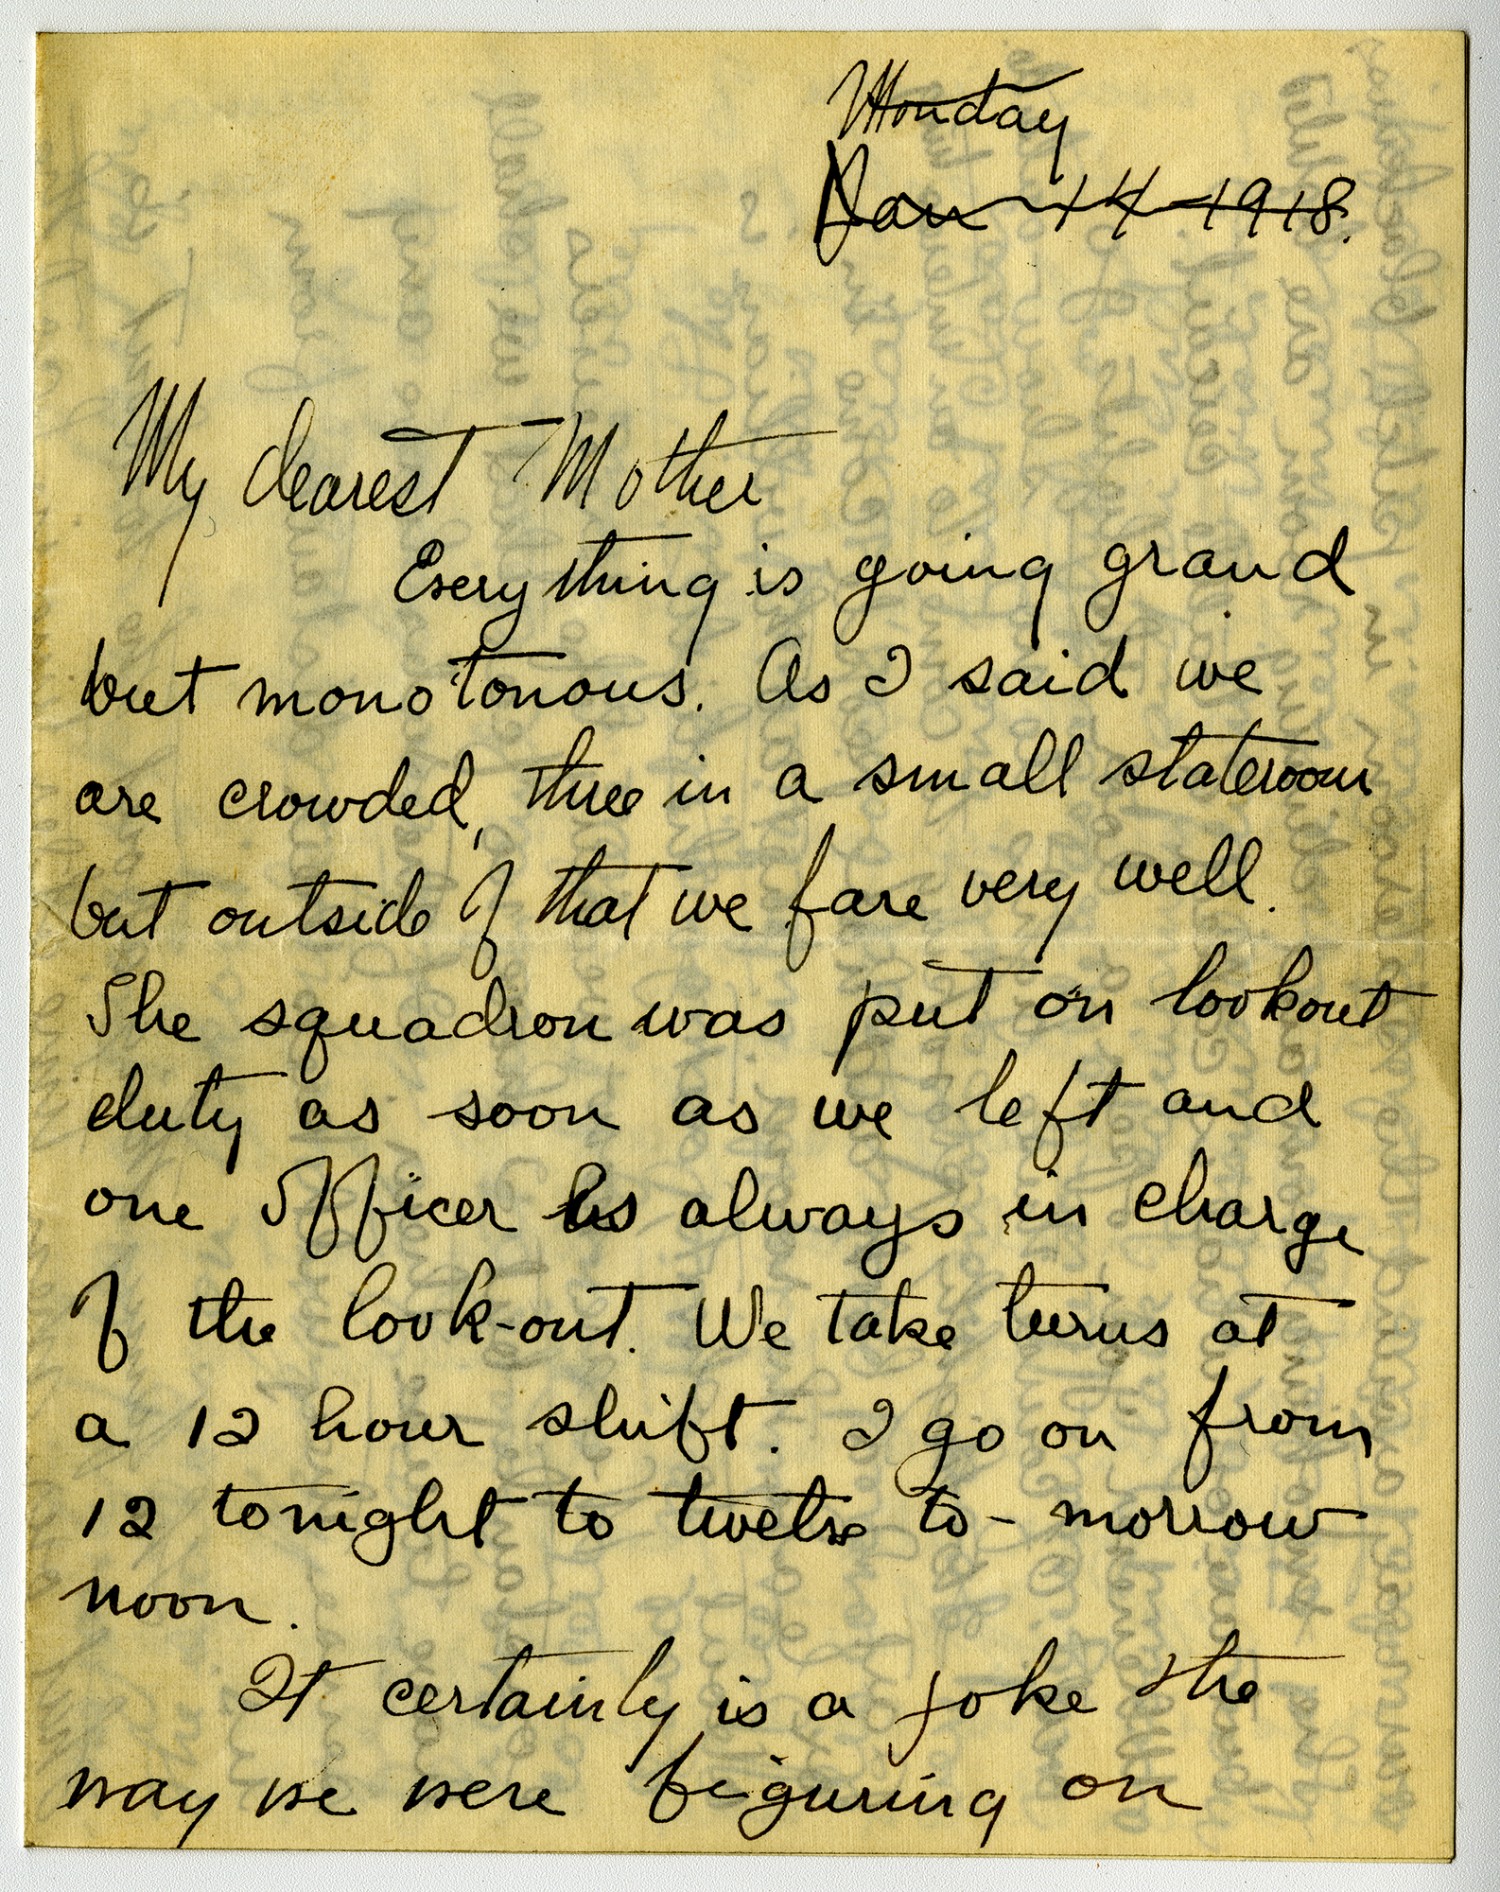 Monday
Jan 14 1918.
My dearest Mother
Everything is going grand
but monotonous. As I said we
are crowded, three in a small stateroom
but outside of that we fare very well.
The squadron was put on lookout
duty as soon as we left and
one officer is always in charge
of the look-out. We take turns at
a 12 hour shift. I go on from
12 tonight to twelve to-morrow
noon.
It certainly is a joke the
way we were figuring on